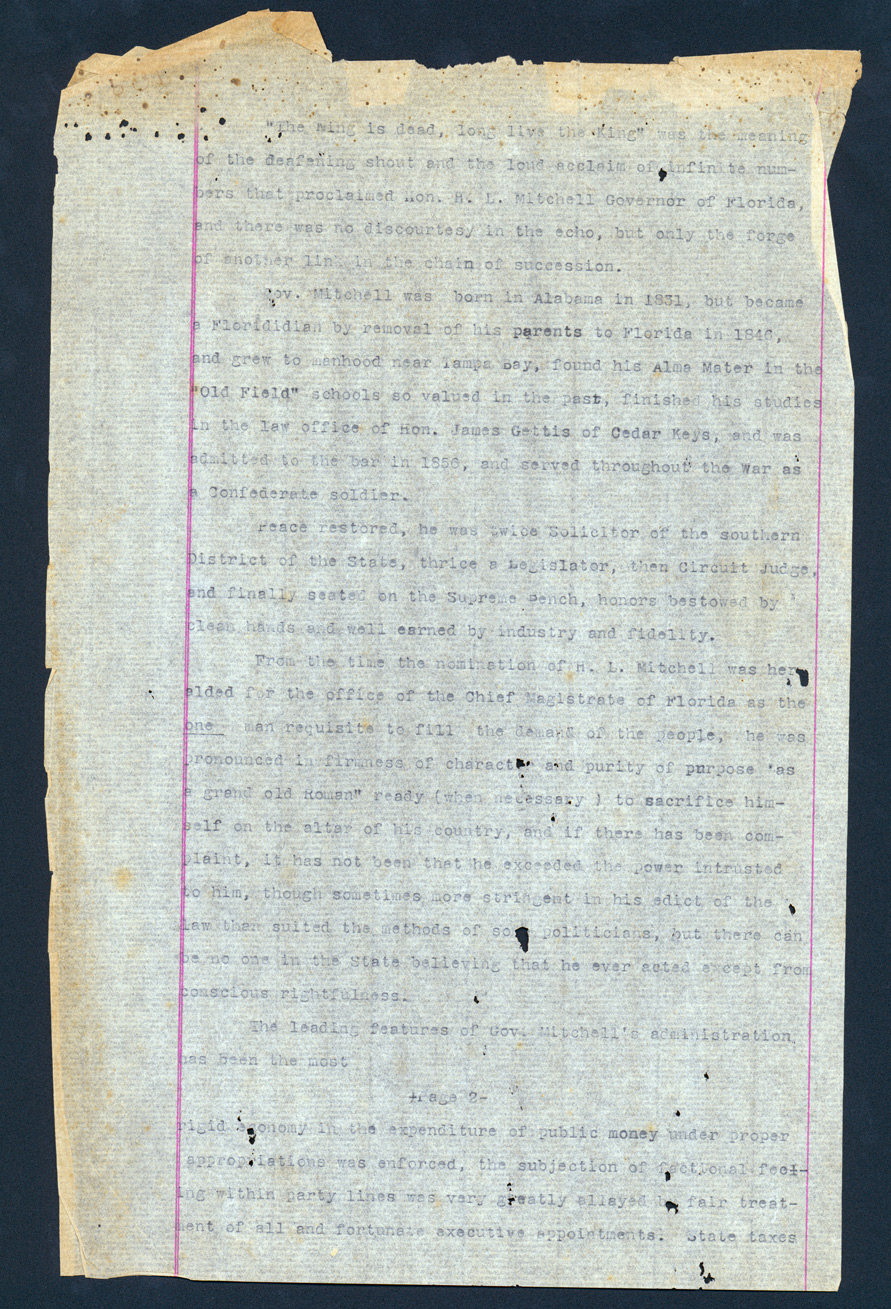 "The King is dead, long live the King" was the meaning
of the deafening shout and the loud acclaim of infinite num-
bers that proclaimed Hon. H. L. Mitchell Governor of Florida,
and there was no discourtesy in the echo, but only the forge
of another link in the chain of succession.
Gov. Mitchell was born in Alabama in 1831, but became
a Florididian by removal of his parents to Florida in 1846,
and grew to manhood near Tampa Bay, found his Alma Mater in the
"Old Field" schools so valued in the past, finished his studies
in the law office of Hon. James Gettis of Cedar Keys, and was
admitted to the bar in 1856, and served throughout the War as
a Confederate soldier.
Peace restored, he was twice Solicitor of the southern
District of the State, thrice a Legislator, then Circuit Judge,
and finally seated on the Supreme Bench, honors bestowed by
clean hands and well earned by industry and fidelity.
From the time the nomination of H. L. Mitchell was her
alded for the office of the Chief Magistrate of Florida as the
one man requisite to fill the demand of the people, he was
pronounced in firmness of character and purity of purpose 'as
a grand old Roman" ready (when necessary ) to sacrifice him-
self on the altar of his country, and if there has been com-
plaint, it has not been that he exceeded the power intrusted
to him, though sometimes more stringent in his edict of the
law than suited the methods of some politicians, but there can
be no one in the State believing that he ever acted except from
conscious rightfulness.
The leading features of Gov. Mitchell's administration,
has been the most
-Page 2-
rigid economy in the expenditure of public money under proper
appropriations was enforced, the subjection of factional feel-
ing within party lines was very greatly allayed by fair treat-
ment of all and fortunate executive appointments. State taxes